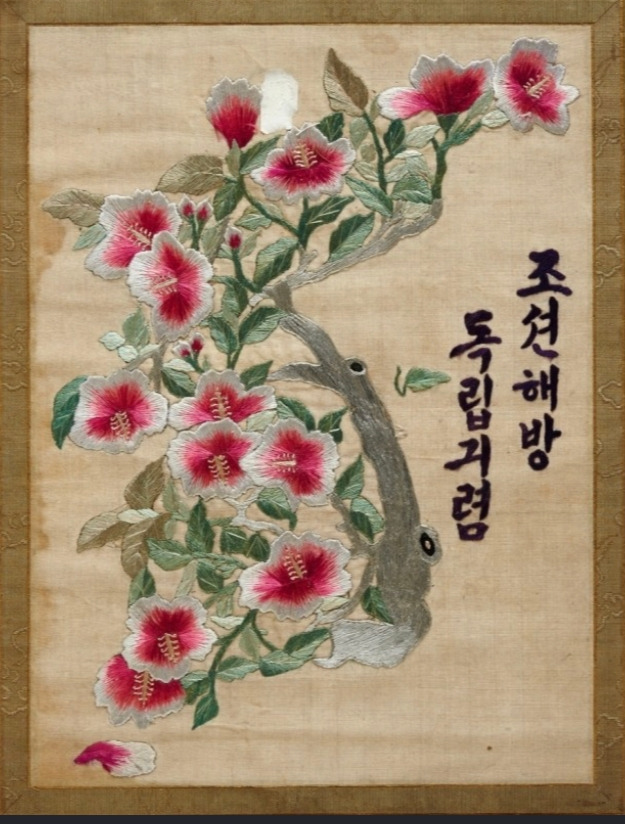 조션해방
독립긔렴